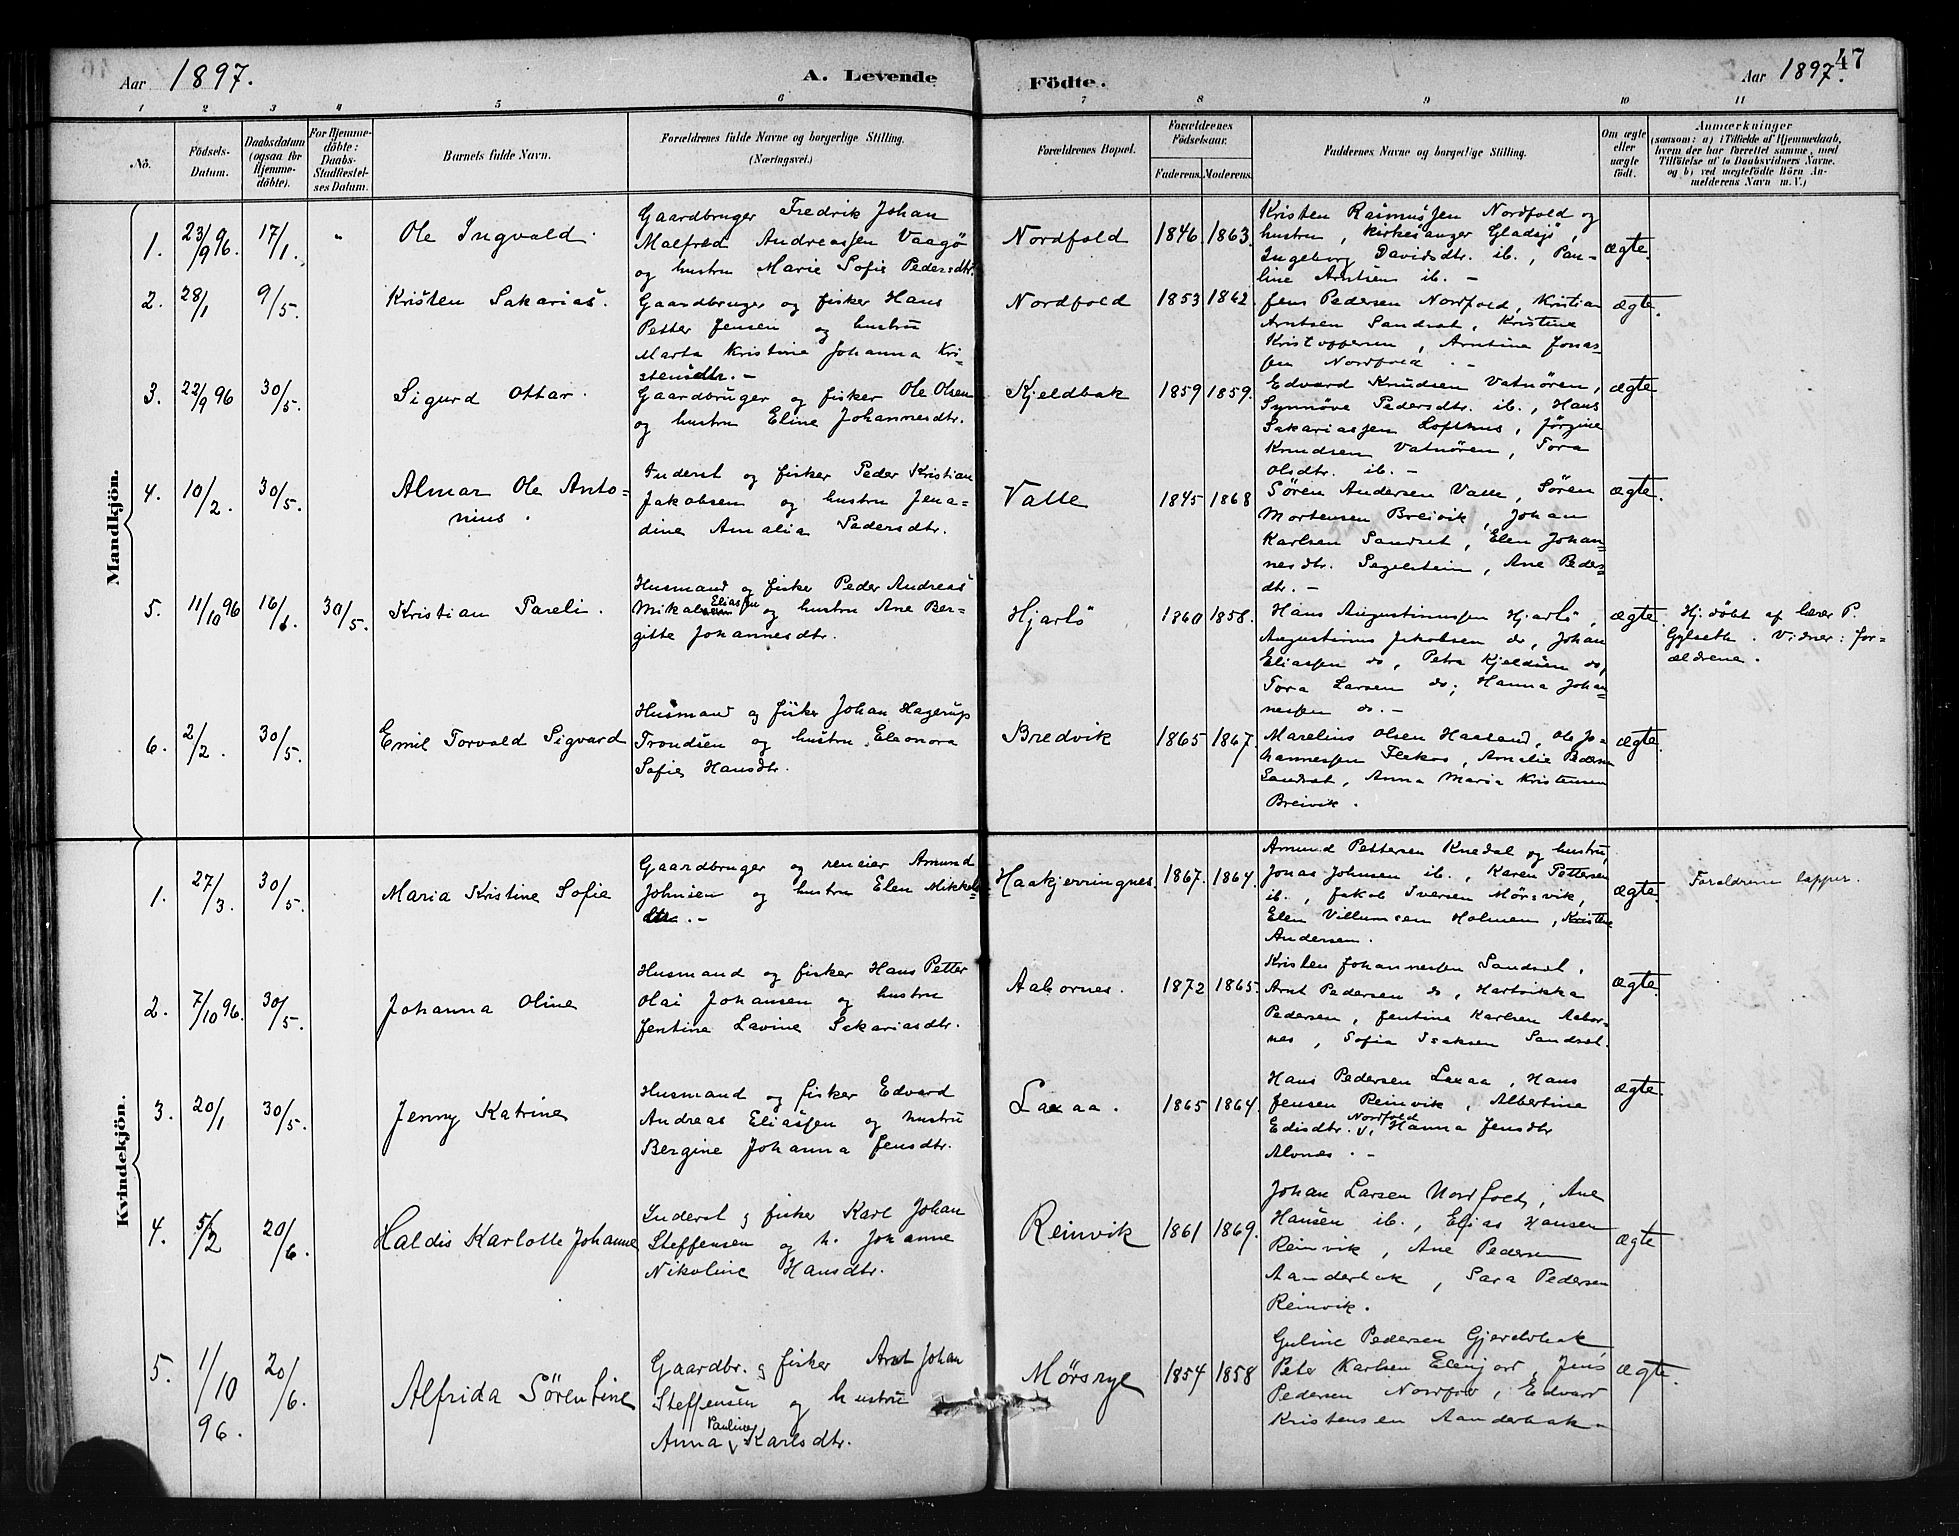 Aar 1897.
A. Levende
Födte.
Aar 1897.
47
1 2 3 4 5 6 7 8 9 10 11
No.
Födsels-Datum.
Daabsdatum (ogsaa for Hjemme-döbte).
For Hjemme-döbte: Daabs-Stadfæstel-ses Datum.
Barnets fulde Navn.
Forældrenes fulde Navne og borgerlige Stilling.
(Næringsvei.)
Forældrenes Bopæl.
Forældrenes Födselsaar.
Faderens. Moderens.
Faddernes Navne og borgerlige Stilling.
Om ægte eller uægte födt.
Anmærkninger
(saasom: a) i Tilfælde af Hjemmedaab,
hvem der har forrettet samme, med
Tilföielse af to Daabsvidners Navne.
og b) ved uægtefödte Börn An-
melderens Navn m. V.)
Mandkjön.
1. 23/9 96. 17/1. " Ole Ingvald.
Gaardbruger Fredrik Johan
Malfred Andreassen Vaagø
og hustru Marie Sofie Pedersdtr.
Nordfold 1846. 1863.
Kristen Rasmussen Nordfold og
hustru, kirkesanger Gladsjø,
Ingeborg Davidsdtr. ib., Pau-
line Arntsen ib. -
ægte.
2. 28/1 9/5. Kristen Sakarias.
Gaardbruger og fisker Hans
Petter Jensen og hustru
Marta Kristine Johanna Kri-
stensdtr. -
Nordfold 1853 1862
Jens Pedersen Nordfold, Kristian
Arntsen Sandset, Kristine
Kristoffersen, Arntine Jonas-
sen Nordfold. -
ægte.
3. 22/9 96 30/5. Sigurd Ottar.
Gaardbruger og fisker Ole Olsen
og hustru Eline Johannesdtr.
Kjeldbak 1859 1859.
Edvard Knudsen Vatnøren,
Synnøve Pedersdtr. ib., Hans
Sakariassen Lofthus, Jørgine
Knudsen Vatnøren, Tora
Olsdtr. ib. -
ægte
4. 10/2. 30/5. Almar Ole Anto-
nius.
Inderst og fisker Peder Kristian
Jakobsen og hustru Jena-
dine Amalia Pedersdtr.
Valle 1845 1868
Søren Andersen Valle, Søren
Mortensen Breivik, Johan
Karlsen Sandset, Elen Johan-
nesdtr. Segelstein, Ane Peders-
dtr. -
ægte.
5. 11/10 96 16/1. 30/5. Kristian Pareli.
Husmand og fisker Peder Andreas
Mikal Eliassen og hustru Ane Ber-
gitte Johannesdtr.
Hjartø 1860 1858.
Hans Augustinussen Hjartø,
Augustinus Jakobsen do, Johan
Eliassen do, Petra Kjeldsen do,
Tora Larsen do; Hanna Johan-
nessen do. -
ægte.
Hj.døbt af lærer P.
Gylseth. Vidner: for-
ældrene.
6. 2/2. 30/5. Emil Torvald Sigvard
Husmand og fisker Johan Hagerup
Trondsen og hustru Eleonora
Sofie Hansdtr.
Bredvik 1865 1867.
Marelius Olsen Haasand, Ole Jo-
hannessen Flekos, Amalie Pedersen
Sandset, Anna Maria Kristensen
Breivik.
ægte.
Kvindekjön.
1. 27/3. 30/5. Maria Kristine Sofie
Gaardbruger og reneier Amund
Johnsen og hustru Elen Mikkels-
dtr. -
Haakjerringnes. 1867. 1864.
Amund Pettersen Knedal og hustru,
Jonas Johnsen ib., Karen Pettersen
ib., Jakob Iversen Mørsvik,
Elen Villumsen Holmen, Kristine
Andersen.
ægte.
Forældrene lapper.
2. 7/10 96. 30/5. Johanna Oline
Husmand og fisker Hans Petter
Olai Johansen og hustru
Jentine Lavine Sakariasdtr.
Aabornes. 1872 1865.
Kristen Johannessen Sandset,
Arnt Pedersen do, Hartvikka
Pedersen, Jentine Karlsen Aabor-
nes, Sofia Isaksen Sandset.
ægte.
3. 20/1 30/5. Jenny Katrine
Husmand og fisker Edvard
Andreas Eliassen og hustru
Bergine Johanna Jensdtr.
Laxaa. 1865 1864.
Hans Pedersen Laxaa, Hans
Jensen Reinvik, Albertine
Edisdtr. Nordfold, Hanna Jensdtr
Alvnes. -
ægte.
4. 5/2 20/6. Haldis Karlotte Johanne
Inderst og fisker Karl Johan
Steffensen og h. Johanne
Nikoline Hansdtr.
Reinvik 1861 1869.
Johan Larsen Nordfold, Ane
Hansen ib., Elias Hansen
Reinvik, Ane Pedersen
Aanderbak, Sara Pedersen
Reinvik.
ægte
5. 1/10 96. 20/6. Alfrida Sørentine
Gaardbr. og fisker Arnt Johan
Steffensen og hustru
Anna Pauline Karlsdtr.
Mørsrye 1854 1858
Guline Pedersen Gjerdebak
Peter Karlsen Elenjord, Jens
Pedersen Nordfold, Edvard
Kristensen Aanderbak.
ægte.